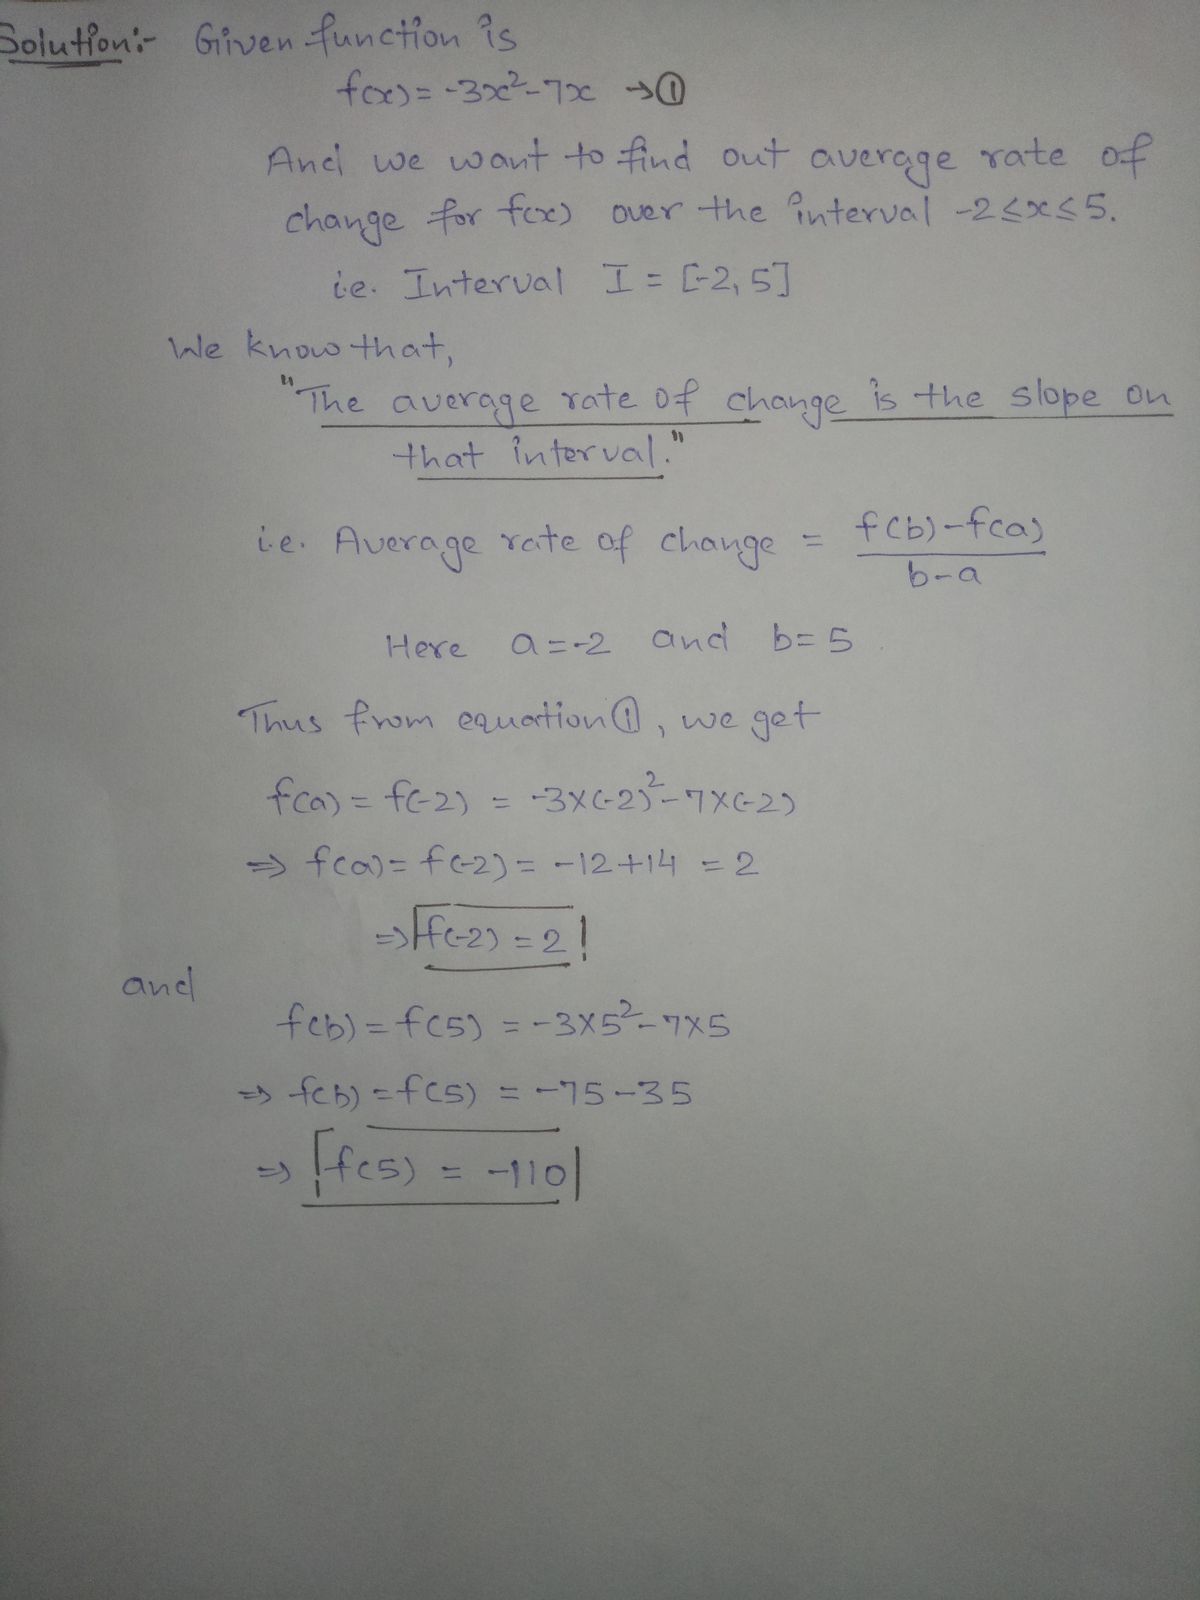 Solution:- Given function is
f(x) = -3x²-7x → ①
And we want to find out average rate of
change for f(x) over the interval -2≤x≤5.
i.e. Interval I = [-2, 5]
We know that,
"The average rate of change is the slope on
that interval."
i.e. Average rate of change = f(b)-f(a)
b-a
Here a=-2 and b=5
Thus from equation ①, we get
f(a) = f(-2) = -3×(-2)²-7×(-2)
⇒ f(a) = f(-2) = -12+14 = 2
⇒ f(-2) = 2
and
f(b) = f(5) = -3×5²-7×5
⇒ f(b) = f(5) = -75-35
⇒ f(5) = -110